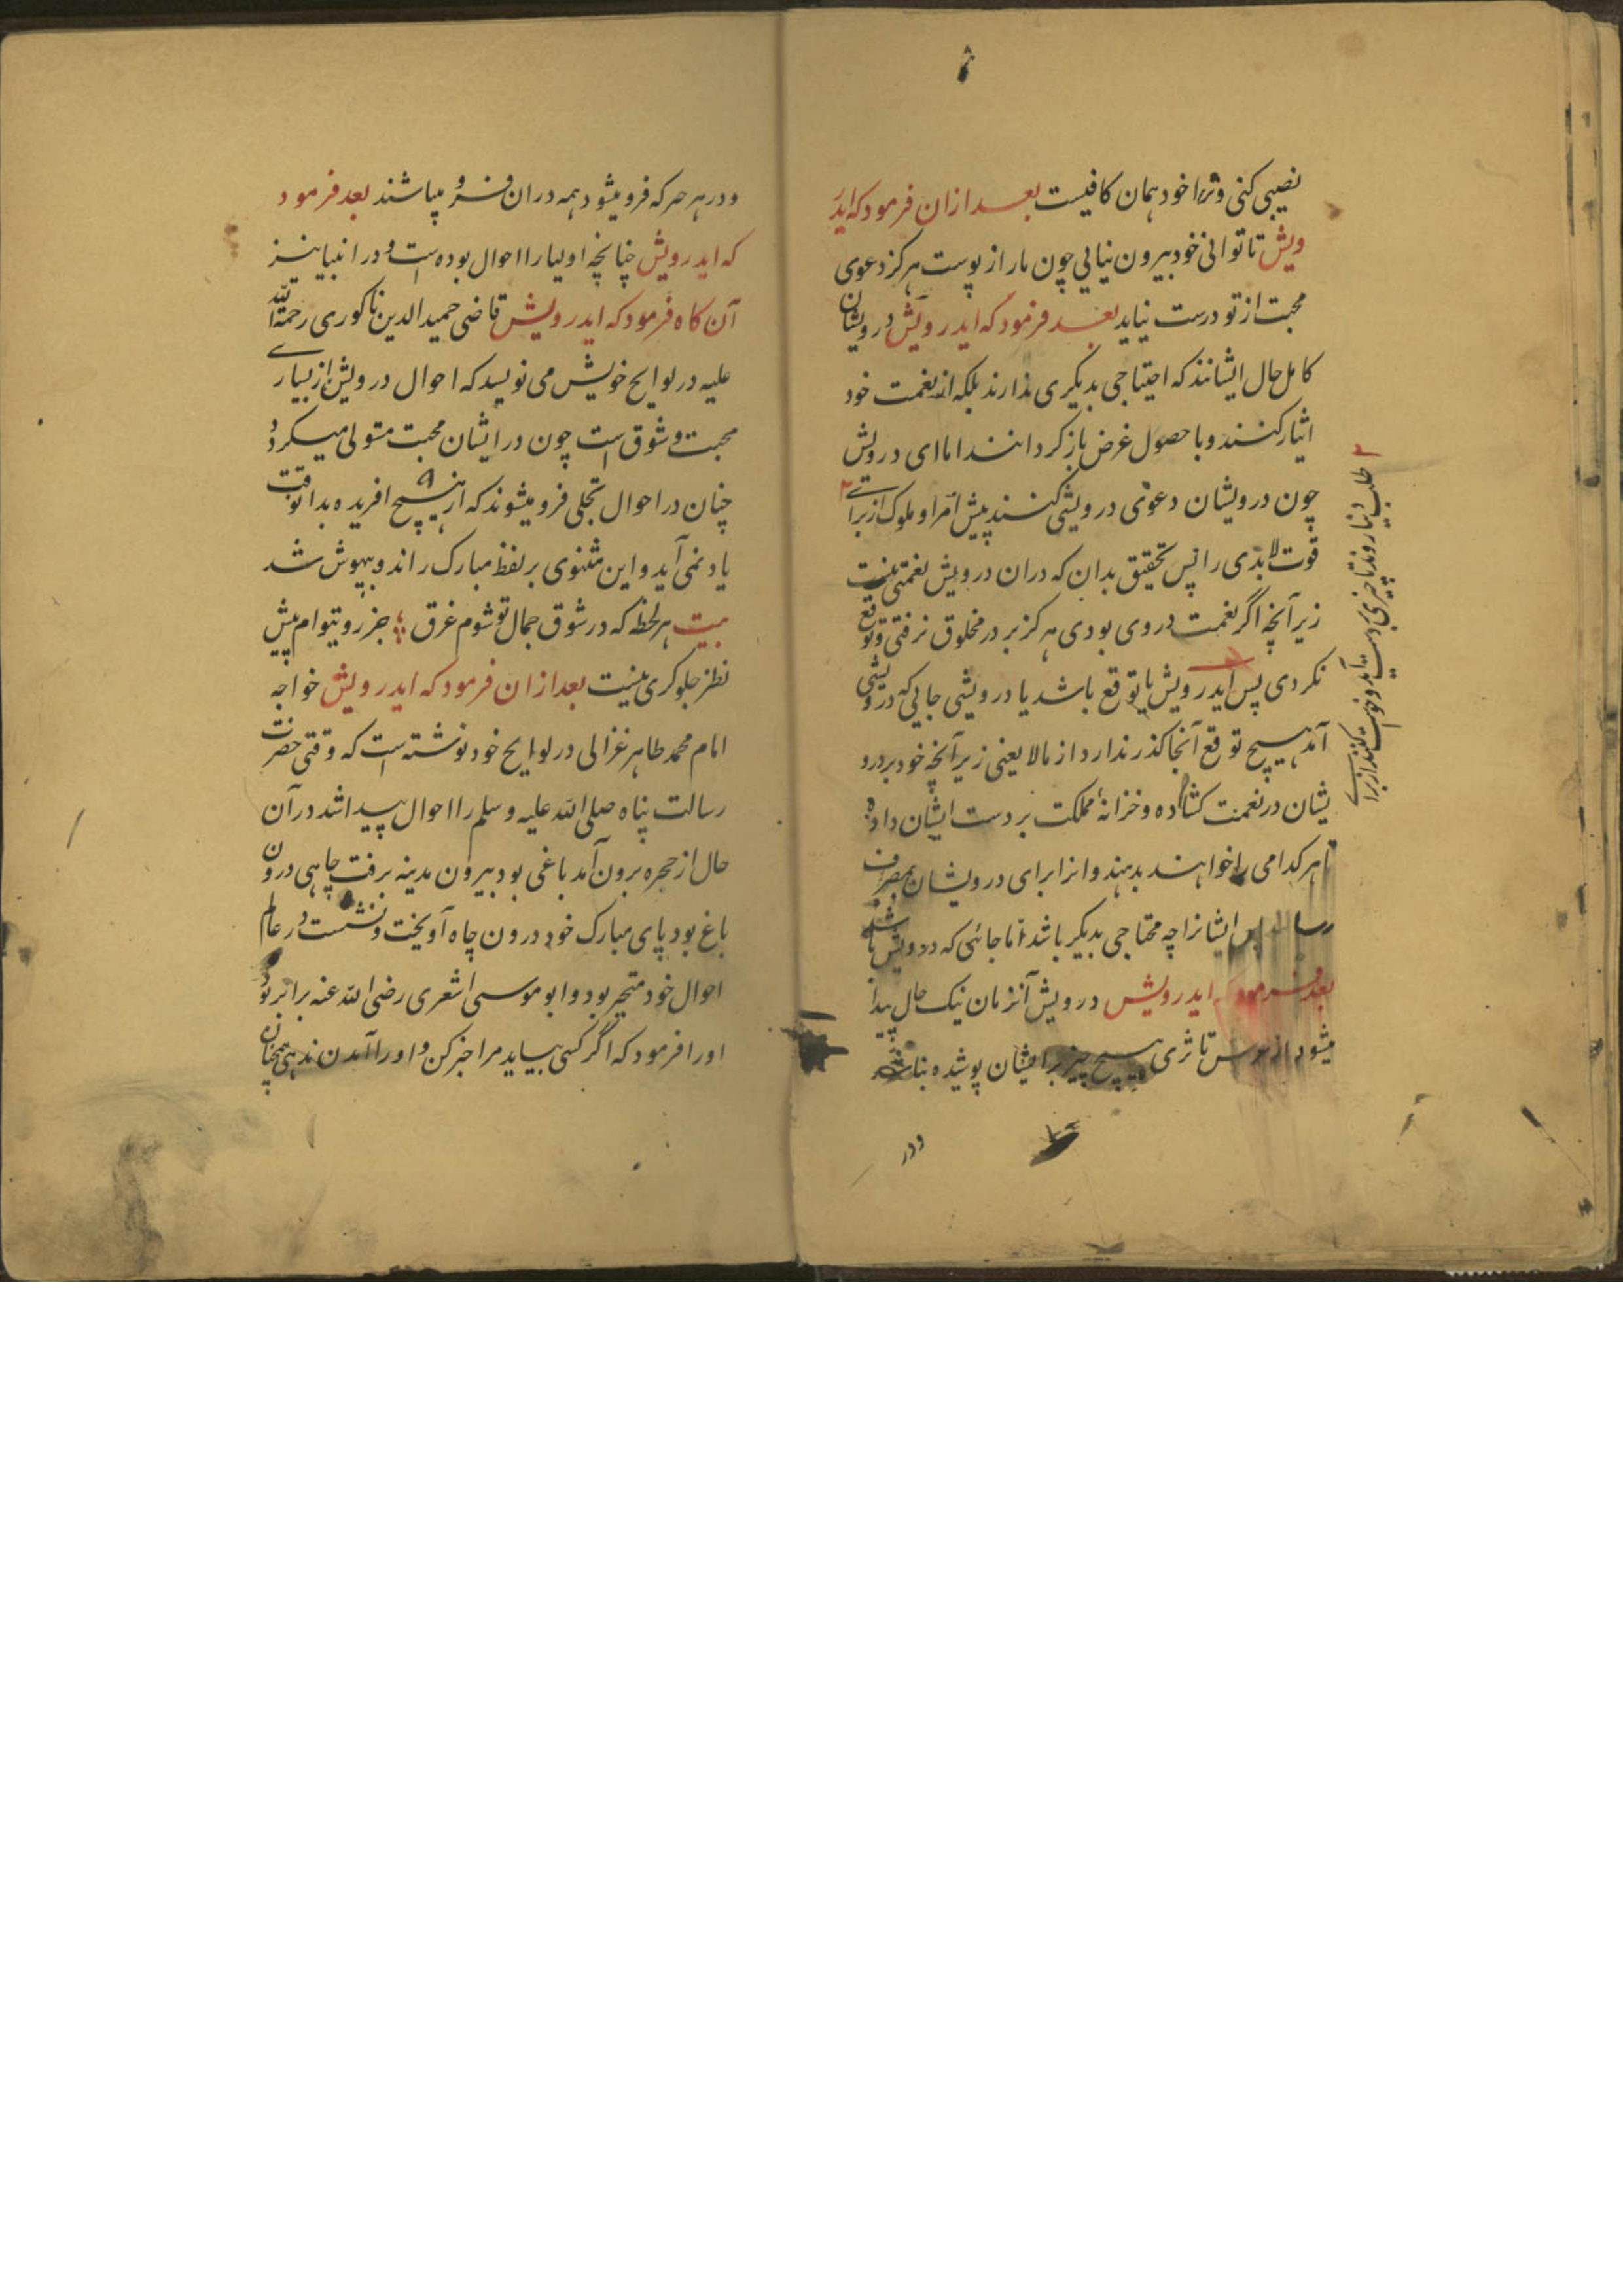 نصیبی کنی وترا خود همان کافیست بعد ازان فرمود که اید
ویش تا توانی خود بیرون نیایی چون مار از پوست هرکز دعوی
محبت از تو درست نیاید بعد فرمود که ایدرویش درویشان
کامل حال ایشانند که احتیاجی بدیکری ندارند بلکه از نعمت خود
ایثار کنند و با حصول غرض باز کردانند اما ای درویش
چون درویشان دعوی درویشی کنند پیش امرا و ملوک از برای ۲
قوت لابدی را پس تحقیق بدان که دران درویش نعمتی نیست
زیرآنچه اگر نعمت در وی بودی هرکز بر در مخلوق نرفتی و توقع
نکردی پس ایدرویش یا توقع باشد یا درویشی جایی که درویشی
آمد هیچ توقع آنجا کذر ندارد از مالا یعنی زیرآنچه خود بر درو
یشان در نعمت کشاده و خزانهٔ مملکت بر دست ایشان داده
تا هر کدامی را خواهند بدهند و انرا برای درویشان بمصرف
رسا پس ایشانرا چه محتاجی بدیکر باشد اما جائی که درویش باشد
بعد فرمود که ایدرویش درویش آنزمان نیک حال پیدا
میشود از عرش تا ثری هیچ چیز بر ایشان پوشیده نباشد
ودر
۲ طلب دنیا روند تا چیزی بدست آید و خواست کنند از برای
ودر هر حرکه فرو میشود همه دران فرو میباشند بعد فرمود
که ایدرویش چنانچه اولیا را احوال بوده است و در انبیا نیز
آن کاه فرمود که ایدرویش قاضی حمیدالدین ناکوری رحمةالله
علیه در لوایح خویش می نویسد که احوال درویش از بسیاری
محبت و شوق است چون در ایشان محبت مستولی میکردد
چنان در احوال تجلی فرو میشوند که از هیچ افریده بدانوقت
یاد نمی آید و این مثنوی بر لفظ مبارک راند و بیهوش شد
بیت هر لحظه که در شوق جمال تو شوم غرق ؛ جز روتیوام پیش
نظر جلوکری نیست بعد ازان فرمود که ایدرویش خواجه
امام محمد طاهر غزالی در لوایح خود نوشته است که وقتی حضرت
رسالت پناه صلی الله علیه وسلم را احوال پیدا شد در آن
حال از حجره برون آمد باغی بود بیرون مدینه برفت چاهی درون
باغ بود پای مبارک خود درون چاه آویخت و نشست در عالم
احوال خود متحیر بود و ابو موسی اشعری رضی الله عنه برابر بود
اورا فرمود که اگر کسی بیاید مرا خبر کن و اورا آمدن ندهی همچنان